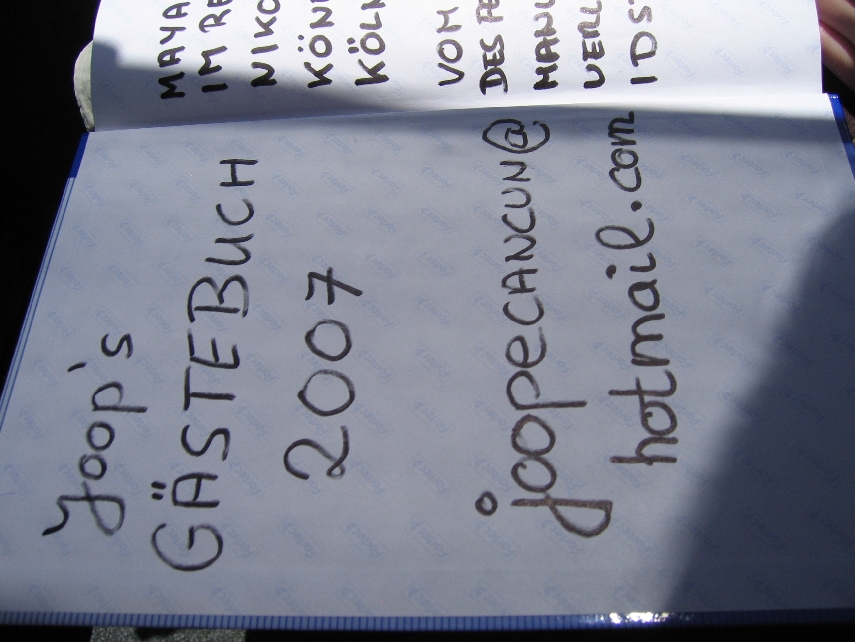 Joop's
GÄSTEBUCH
2007
joopeCANCUN@
hotmail.com
MAYA
IM RE
NIKO
KÖNI
KÖLN
VOM
DES FE
MANU
VERL
IDST